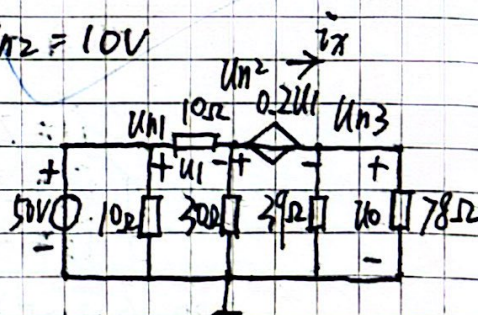 n2 = 10V
ix
Un2
Un1 10Ω 0.2U1 Un3
+ + U1 - + - +
50V 10Ω 30Ω 39Ω Uo 78Ω
- -